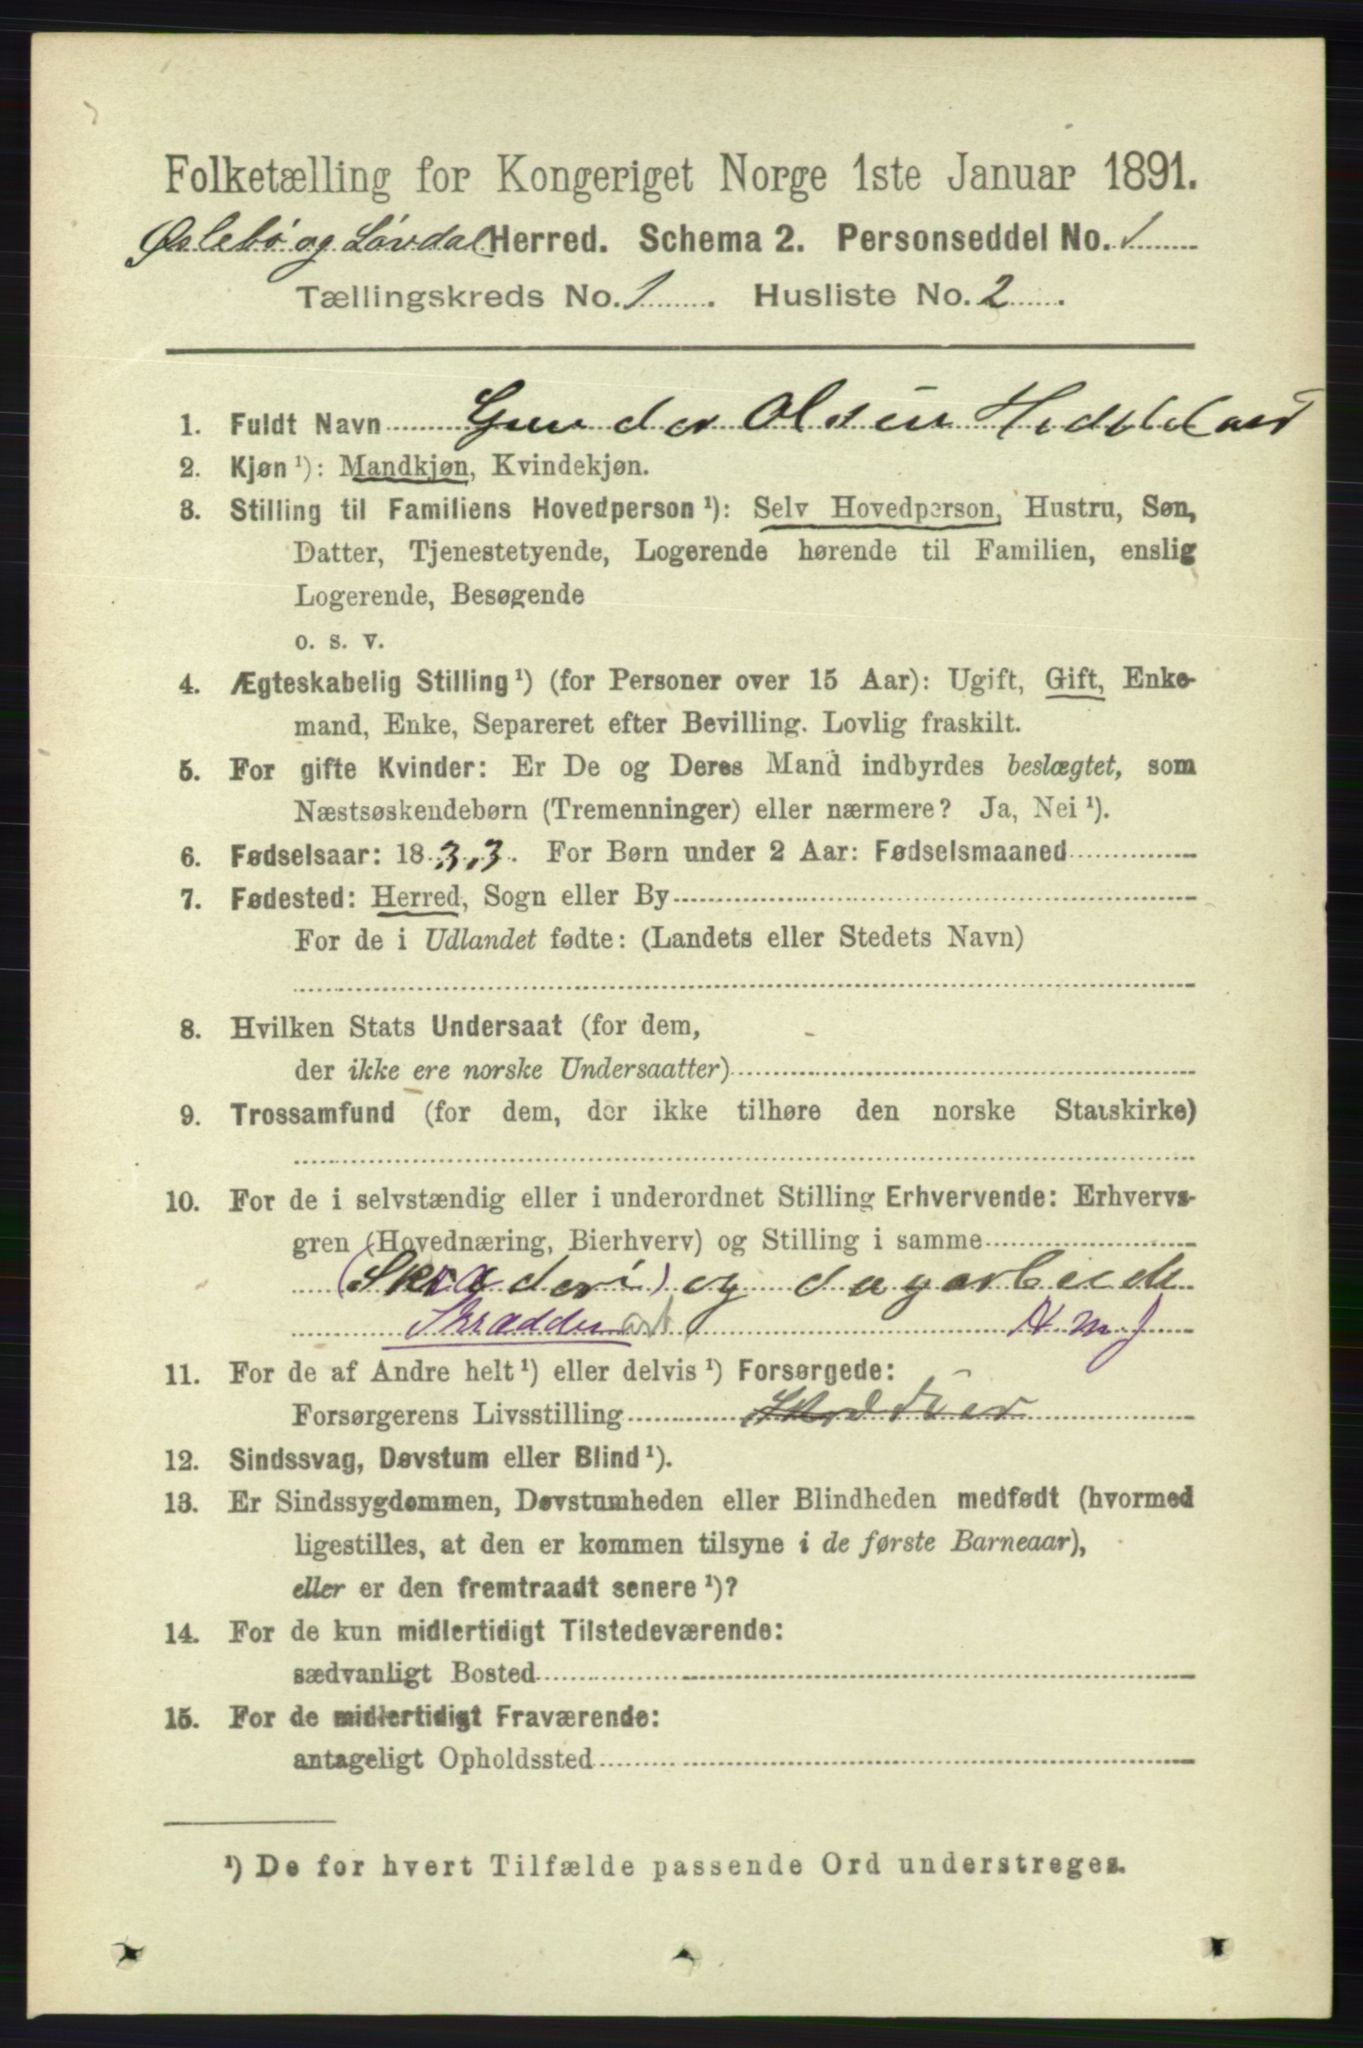 Folketælling for Kongeriget Norge 1ste Januar 1891.
Øslebø og Løvdal Herred. Schema 2. Personseddel No. 1
Tællingskreds No. 1. Husliste No. 2.
1. Fuldt Navn Gunder Olsen
2. Kjøn ¹): Mandkjøn, Kvindekjøn.
3. Stilling til Familiens Hovedperson ¹): Selv Hovedperson, Hustru, Søn,
Datter, Tjenestetyende, Logerende hørende til Familien, enslig
Logerende, Besøgende
o. s. v.
4. Ægteskabelig Stilling ¹) (for Personer over 15 Aar): Ugift, Gift, Enke-
mand, Enke, Separeret efter Bevilling. Lovlig fraskilt.
5. For gifte Kvinder: Er De og Deres Mand indbyrdes beslægtet, som
Næstsøskendebørn (Tremenninger) eller nærmere? Ja, Nei ¹).
6. Fødselsaar: 1833. For Børn under 2 Aar: Fødselsmaaned
7. Fødested: Herred, Sogn eller By
For de i Udlandet fødte: (Landets eller Stedets Navn)
8. Hvilken Stats Undersaat (for dem,
der ikke ere norske Undersaatter)
9. Trossamfund (for dem, der ikke tilhøre den norske Statskirke)
10. For de i selvstændig eller i underordnet Stilling Erhvervende: Erhvervs-
gren (Hovednæring, Bierhverv) og Stilling i samme
(Skræderi) og dagarbeide
Skrædder
11. For de af Andre helt ¹) eller delvis ¹) Forsørgede:
Forsørgerens Livsstilling
12. Sindssvag, Døvstum eller Blind ¹).
13. Er Sindssygdommen, Døvstumheden eller Blindheden medfødt (hvormed
ligestilles, at den er kommen tilsyne i de første Barneaar),
eller er den fremtraadt senere ¹)?
14. For de kun midlertidigt Tilstedeværende:
sædvanligt Bosted
15. For de midlertidigt Fraværende:
antageligt Opholdssted
¹) De for hvert Tilfælde passende Ord understreges.